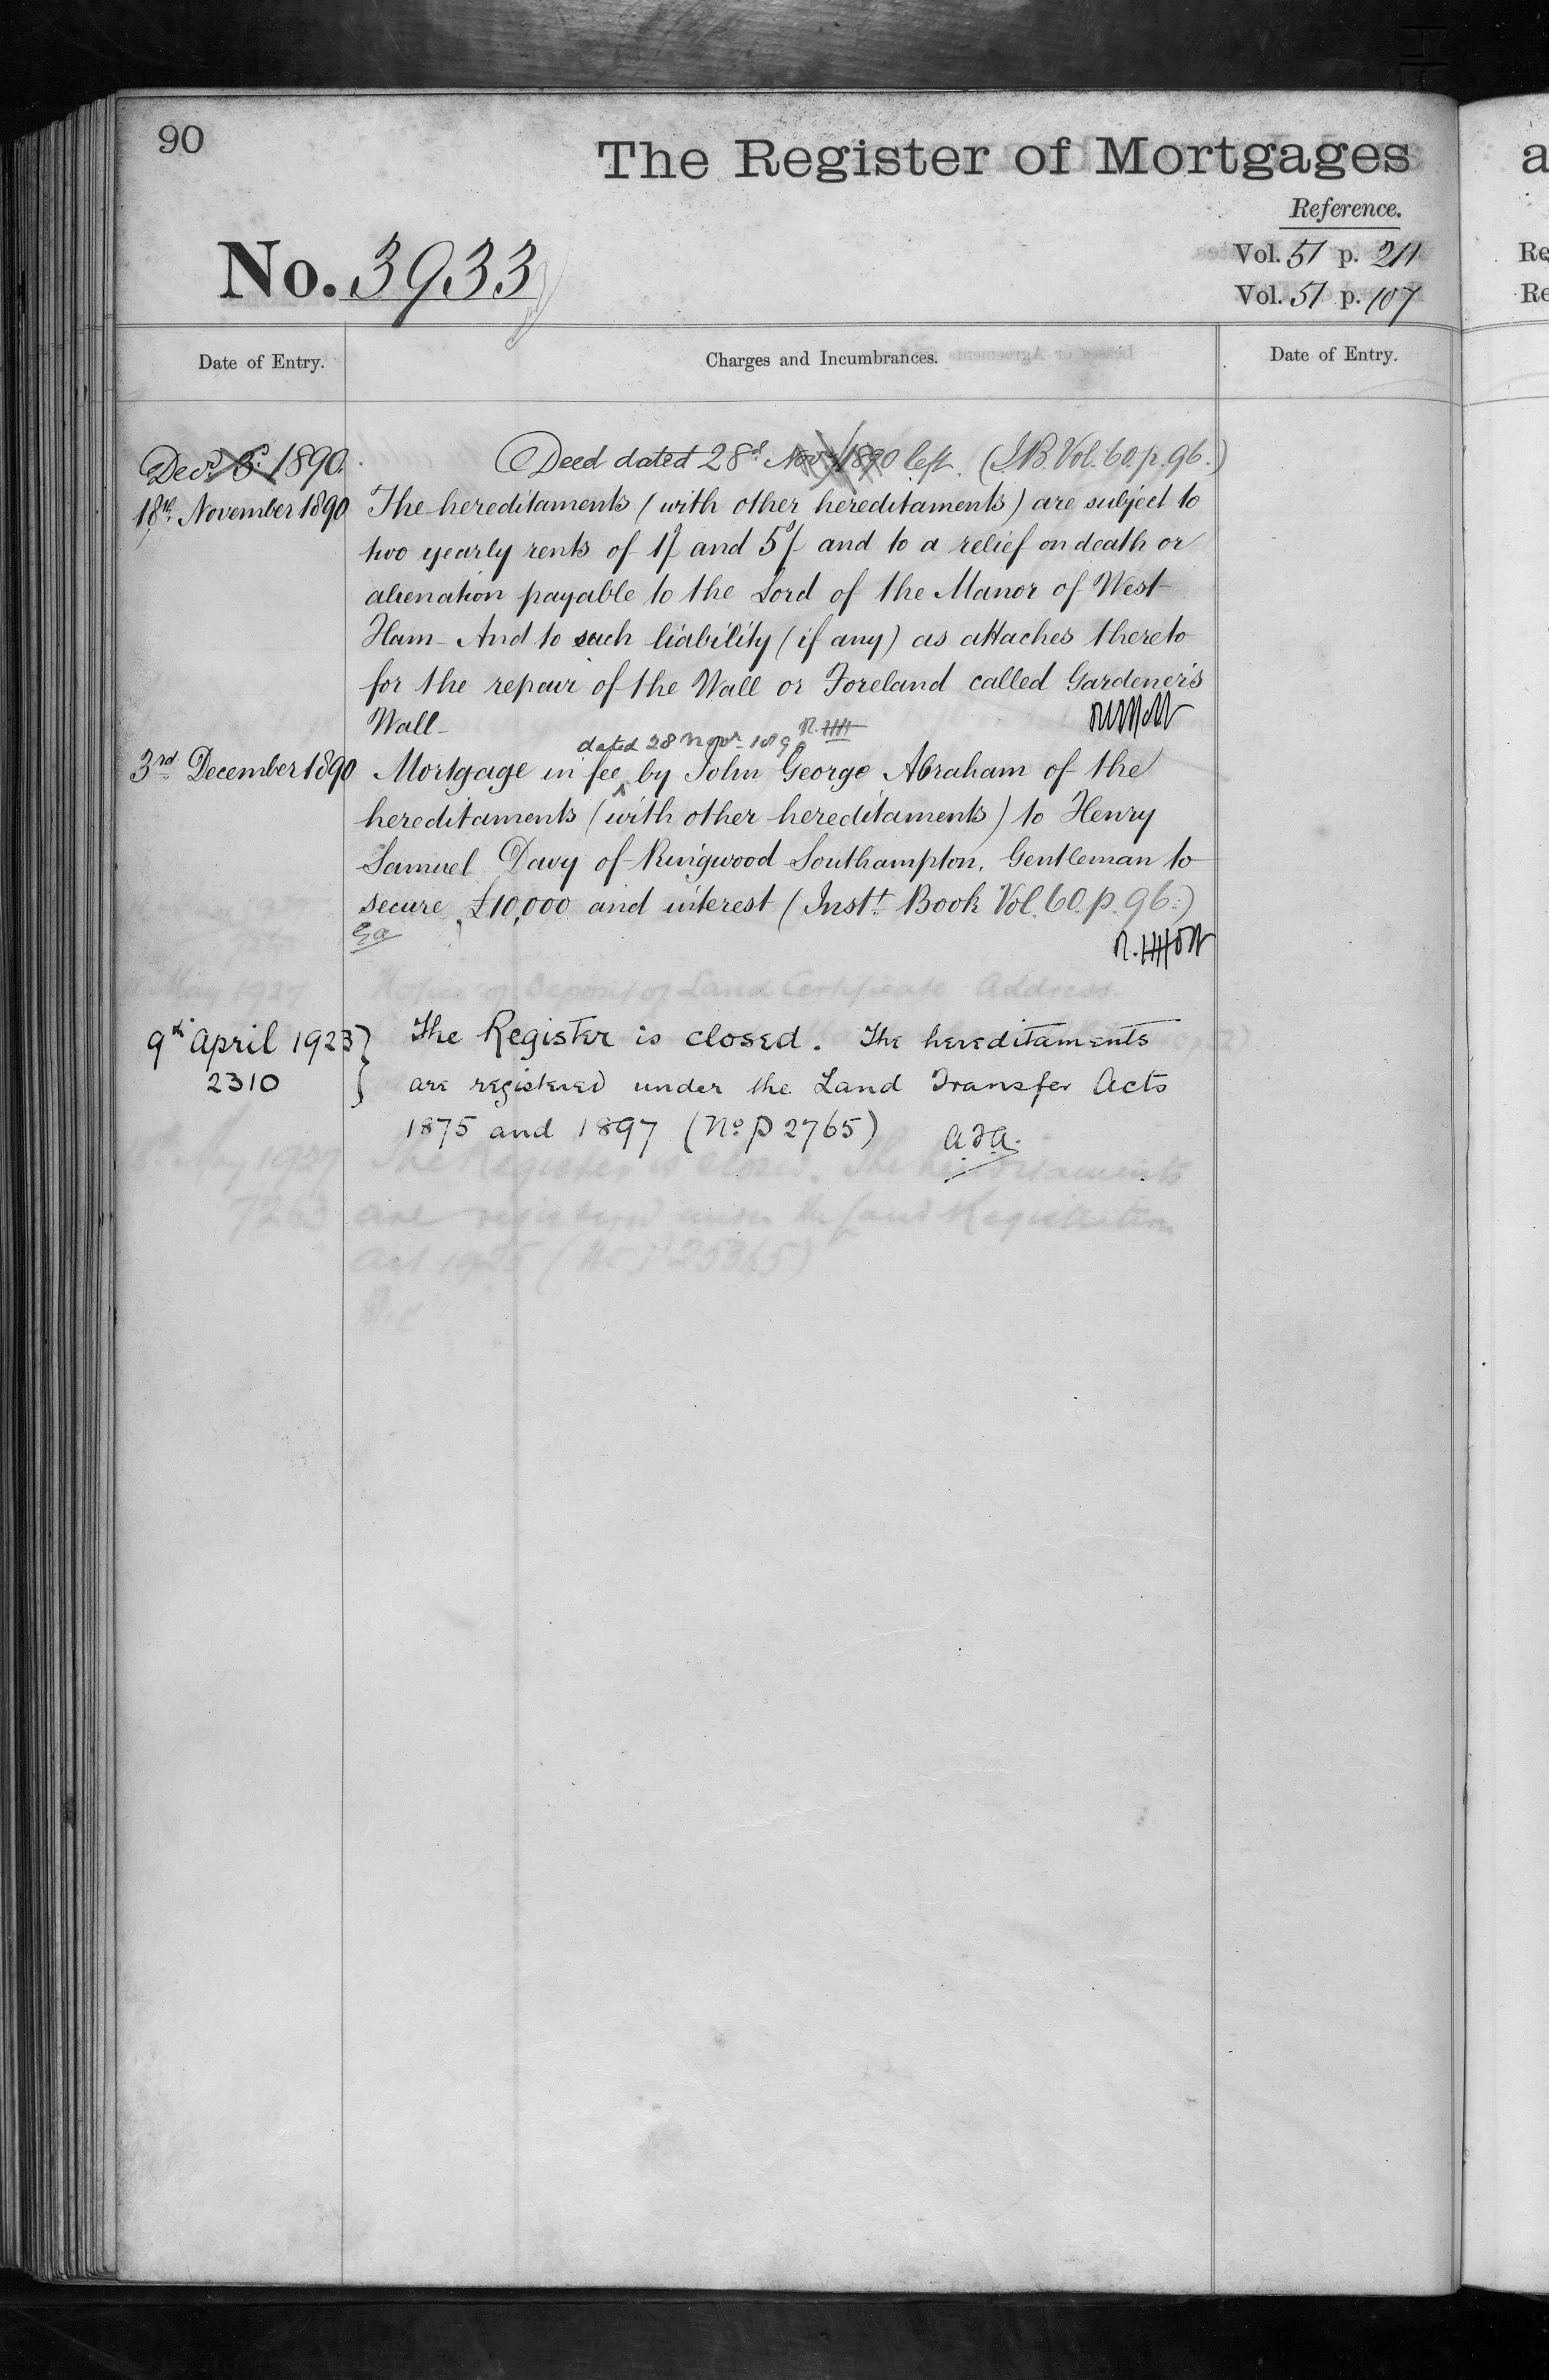 90
The Register of Mortgages
Reference.
No. 3933
Vol. 51 p. 211
Vol. 51 p. 107
Date of Entry.
Charges and Incumbrances.
Date of Entry.
Decr 1890. Deed dated 28th Novr 1890 left. (I.B. Vol. 60. p. 96.)
18th November 1890 The hereditaments (with other hereditaments) are subject to
two yearly rents of and and to a relief on death or
alienation payable to the Lord of the Manor of West
Ham - And to such liability (if any) as attaches thereto
for the repair of the Wall or Foreland called Gardener's
Wall -
dated 28 Novr 1890
3rd December 1890 Mortgage in fee by John George Abraham of the
hereditaments (with other hereditaments) to Henry
Samuel Davy of Ringwood Southampton, Gentleman to
secure £10,000 and interest (Inst. Book Vol. 60. p. 96.)
May 1927 Notice of Deposit of Land Certificate Address
9th April 1923 } The Register is closed. The hereditaments
2310 } are registered under the Land Transfer Acts
1875 and 1897 (No P 2765) A.F.A.
The Register is closed. The hereditaments
7263 are registered under the Land Registration
Act 1925 (No P 25365)
a
Re
Re